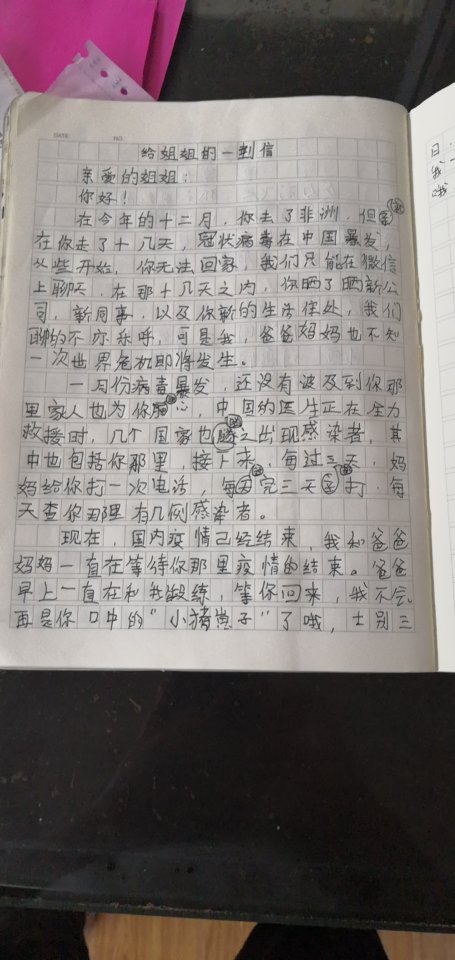 DATE NO
给姐姐的一封信
亲爱的姐姐：
你好！
在今年的十二月，你去了非洲，但是
在你走了十几天，冠状病毒在中国暴发，
从些开始，你无法回家，我们只能在微信
上聊天，在那十几天之内，你晒了晒新公
司，新同事，以及你新的生活住处，我们
聊的不亦乐呼，可是我，爸爸妈妈也不知
一次世界危机即将发生。
一月份病毒暴发，还没有波及到你那
里家人也为你担心，中国的医生正在全力
救援时，几个国家也随之出现感染者，其
中也包括你那里，接下来，每过三天，妈
妈给你打一次电话，每天完三天打，每
天查你那里有几例感染者。
现在，国内疫情已经结束，我和爸爸
妈妈一直在等待你那里疫情的结束。爸爸
早上一直在和我锻练，等你回来，我不会
再是你口中的“小猪崽子”了哦，士别三
日，
我
哦